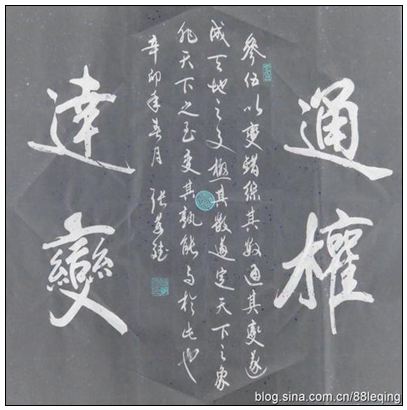 通權
參伍以變錯綜其數通其變遂
成天地之文極其數遂定天下之象
非天下之至變其孰能与於此也
辛卯年春月 張
達變
blog.sina.com.cn/88leqing